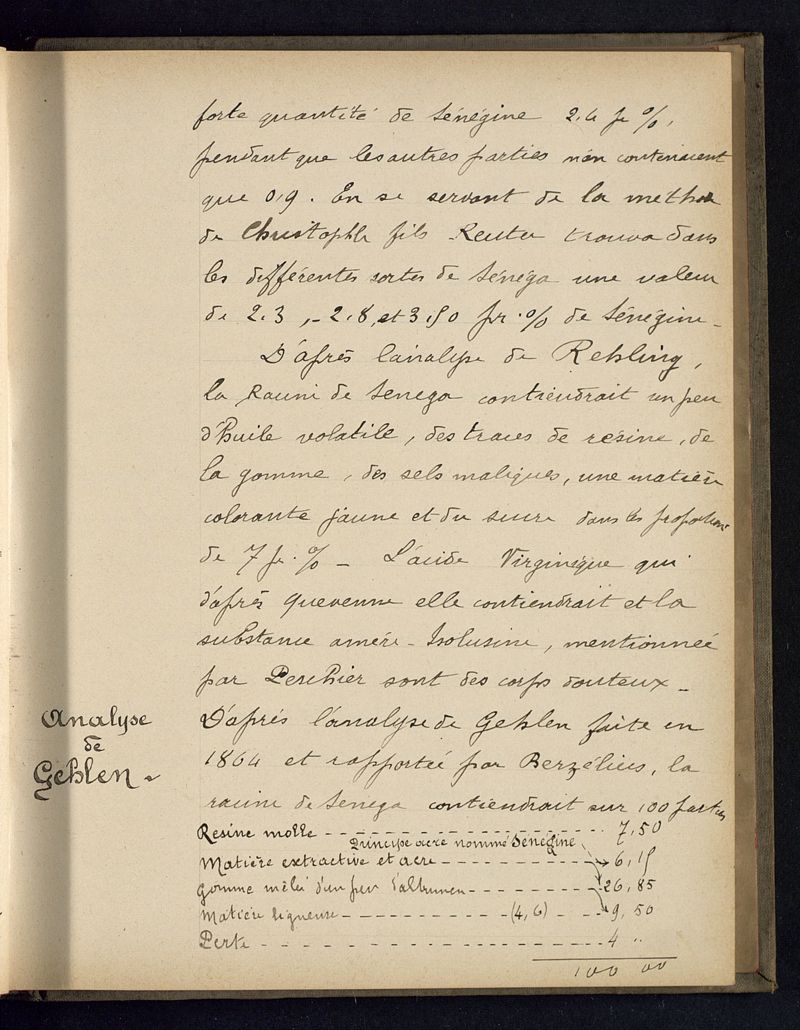 forte quantité de Sénégine 2,4 pr %,
pendant que les autres parties n'en contenaient
que 0,9. En se servant de la méthode
de Christophe fils Reuter trouva dans
les différentes sortes de Sénéga une valeur
de 2.3, - 2.8, et 3,50 pr. % de Sénégine -
D'après l'analyse de Rehling,
la Racine de Senega contiendrait un peu
d'huile volatile, des traces de résine, de
la gomme, des sels maliques, une matière
colorante jaune et du sucre dans les proportions
de 7 pr. % - L'acide Virginéique qui
d'après Quevenne elle contiendrait et la
substance amère - Isolusine, mentionnée
par Peschier sont des corps douteux -
D'après l'analyse de Gehlen faite en
1864 et rapportée par Berzélius, la
racine de Senega contiendrait sur 100 parties
Analyse
de
Gehlen -
Resine molle - - - 7,50
Principe acre nommé Sénégine
Matière extractive et acre - - - 6,15
Gomme mêlée d'un peu d'albumen - - - 26,85
Matière ligneuse - - - (4,6) - - - 9,50
Perte - - - 4 "
100 00